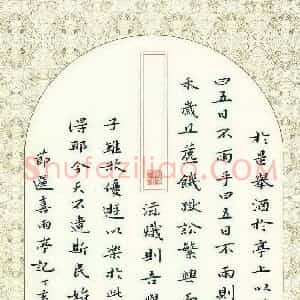 於是舉酒於亭上以
曰五日不雨乎曰五日不雨則
禾歲且薦饑獄訟繁興
滋熾則吾與
子雖欲優遊以樂於此
得耶今天不遺斯民始
節選喜雨亭記丁亥
Shufaziliao.COM